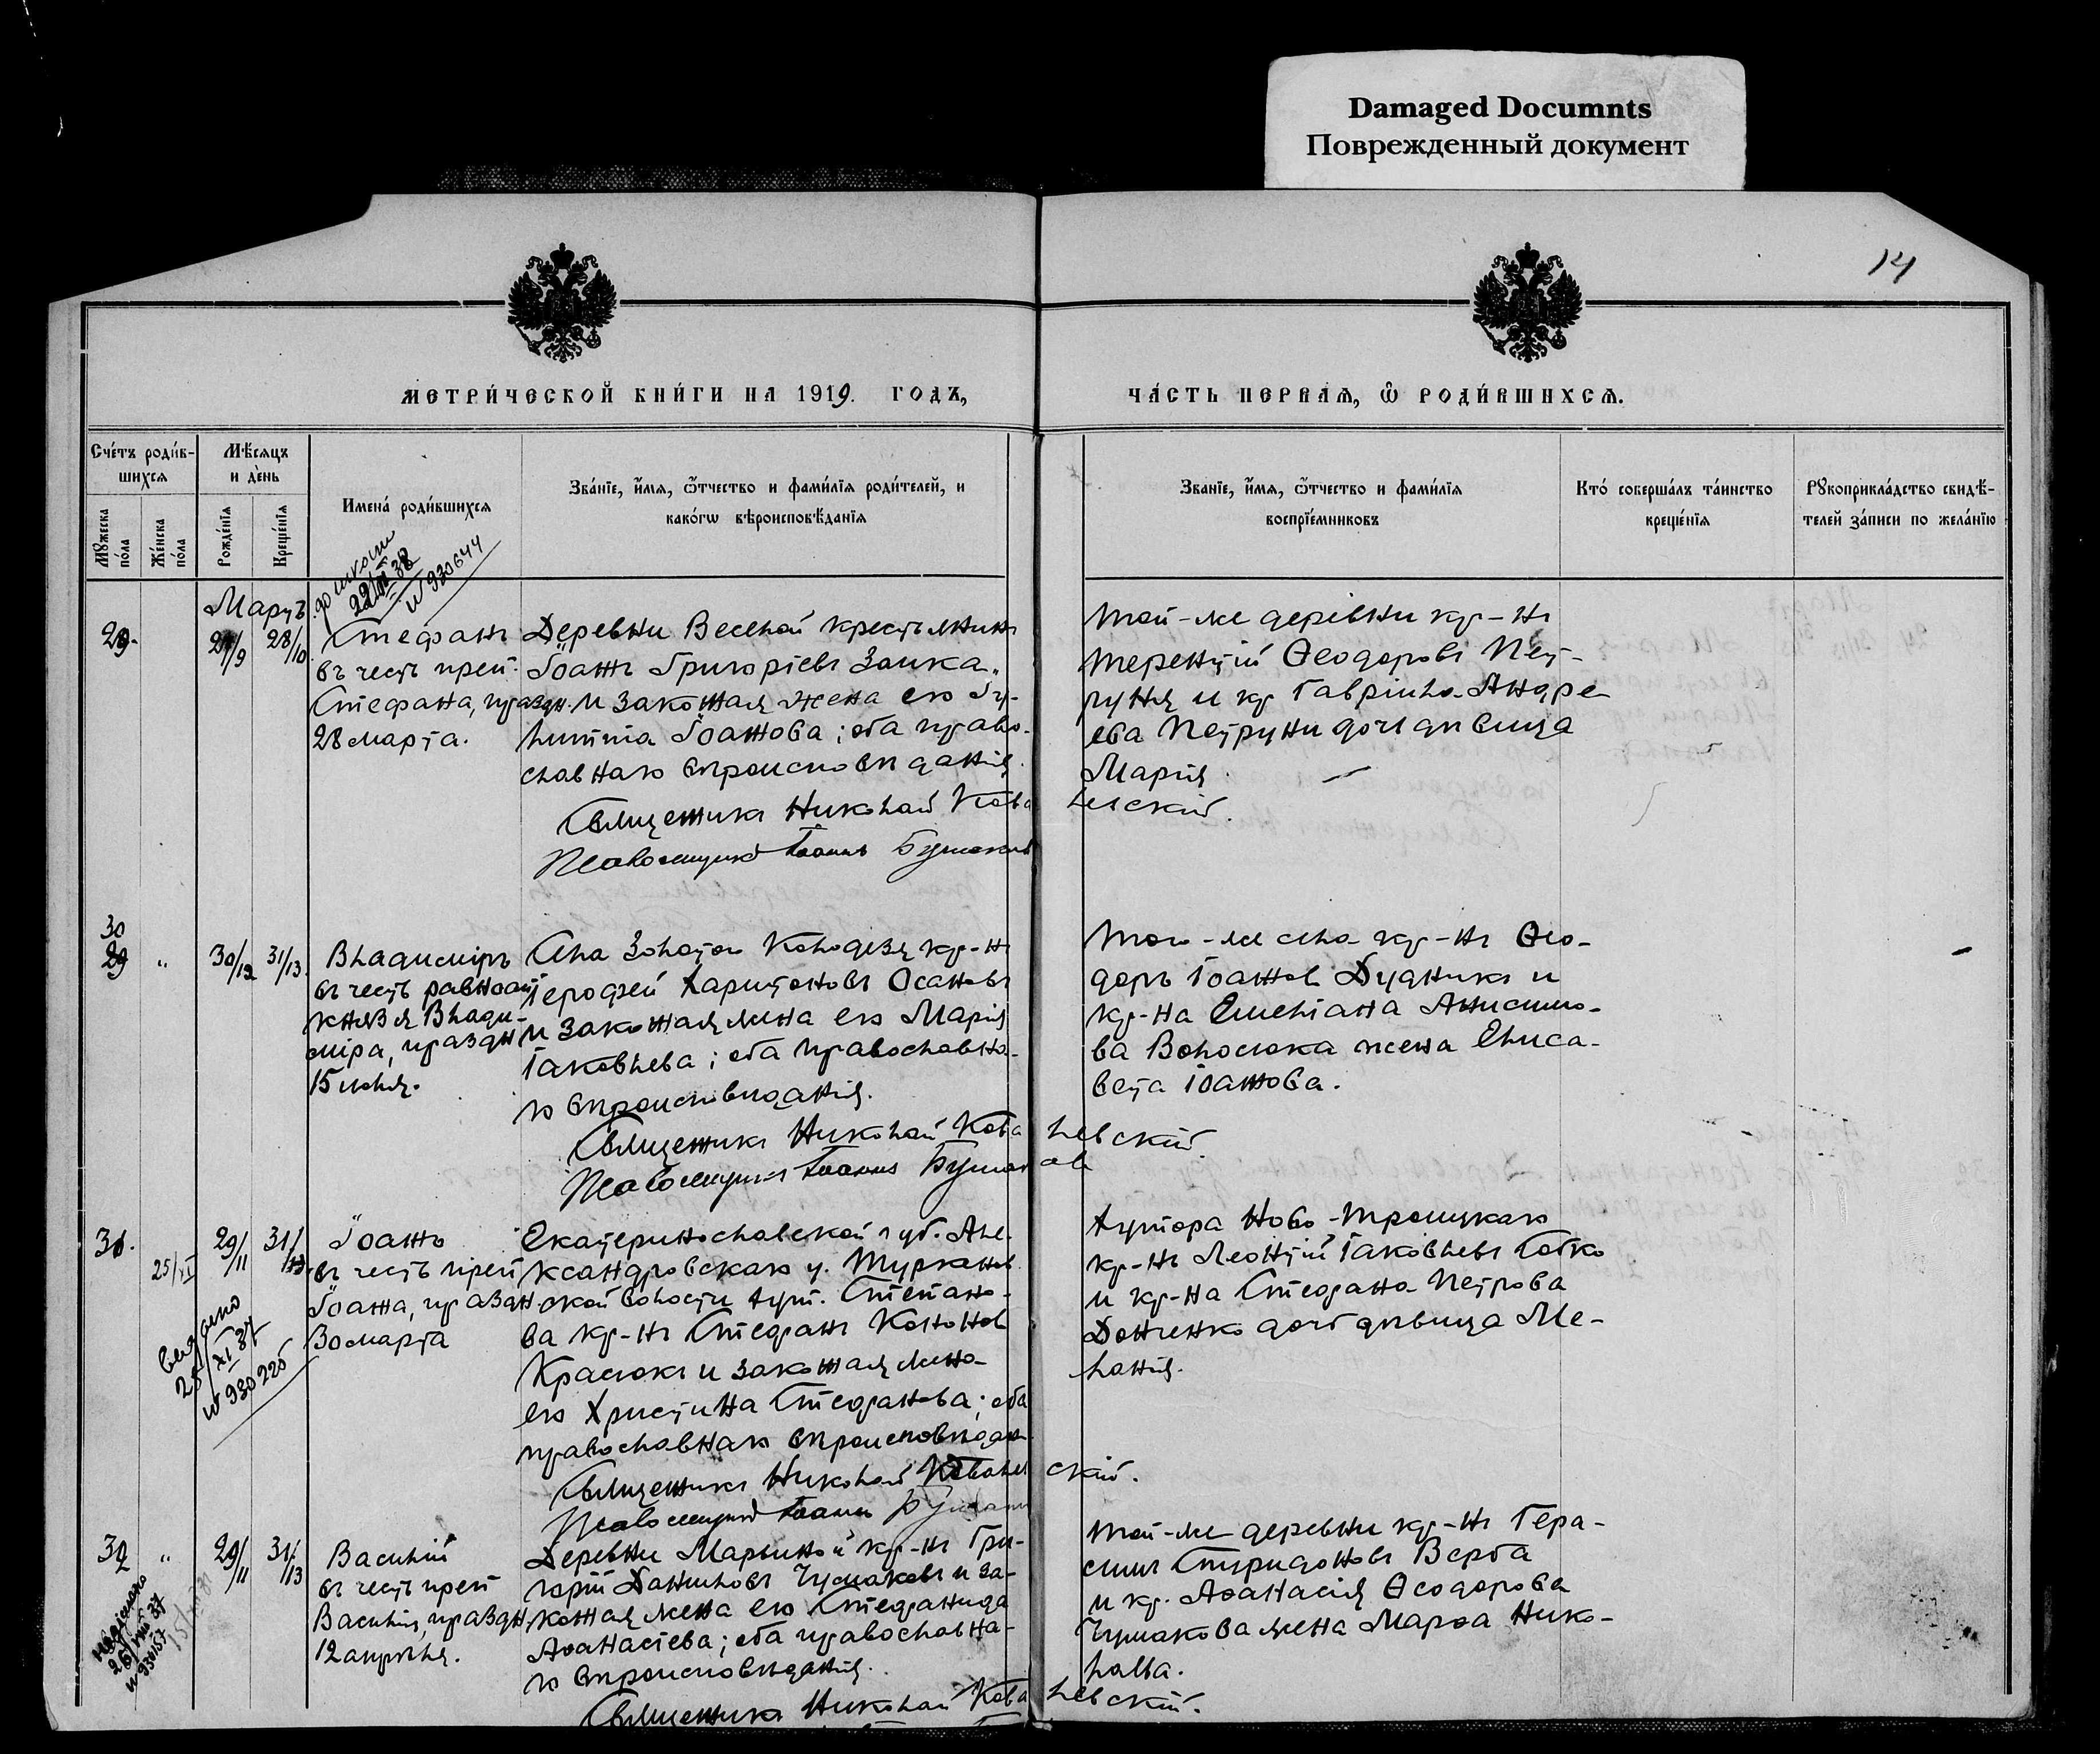 Damaged Documnts
Поврежденный документ
14
МЕТРИ́ЧЕСКОЙ КНИ́ГИ НА 1919. ГОДЪ,
ЧА́СТЬ ПЕРВАѦ, Ѽ РОДИ́ВШИХСѦ.
Сче́тъ роди́в-
шихсѧ
Мꙋ́жеска
по́ла
Же́нска
по́ла
Мѣ́сѧцъ
и де́нь
Рожде́нїѧ
Креще́нїѧ
Имена̀ роди́вшихсѧ
Зва́нїе, и́мѧ, ѻ҆́тчество и фами́лїѧ роди́телей, и
како́гѡ вѣроисповѣ́данїѧ
Зва́нїе, и́мѧ, ѻ҆́тчество и фами́лїѧ
воспрїе́мниковъ
Кто́ соверша́лъ та́инство
креще́нїѧ
Рꙋкоприкла́дство свидѣ́-
телей за́писи по жела́нїю
38
№ 930644
Мартъ
29.
27/9 28/10.
Стефанъ
въ честь преп.
Стефана, праздн.
28 марта.
Деревни Веселой крестьянинъ
Іоаннъ Григоріевъ Заика
и законная жена его Гу-
ликиія Іоаннова; оба право-
славнаго вѣроисповѣданія.
Священникъ Николай Ковалевскій.
Псаломщикъ Іоаннъ Бушаковъ
той-же деревни кр-нъ
Терентій Ѳеодоровъ Пет-
руня и кр Гавріила Андре-
ева Петруни дочь дѣвица
Марія.
30
29 " 30/12 31/13.
Владиміръ
въ честь равноап
князя Влади-
міра, праздн
15 іюля.
Села Золотой Колодезь кр-нъ
Іерофей Харитоновъ Осановъ
и законная жена его Марія
Іаковлева; оба православна-
го вѣроисповѣданія.
Священникъ Николай Ковалевскій.
Псаломщикъ Іоаннъ Бушаковъ
того-же села кр-нъ Ѳео-
доръ Іоаннов Дудникъ и
кр-на Емеліана Анисимо-
ва Волосюка жена Елиса-
вета Іоаннова.
31.
25/XI
29/11 31/13.
Іоаннъ
въ честь преп
Іоанна, праздн
30 марта
выдано
25/XI 37
№ 930225
Екатеринославской губ. Але-
ксандровскаго у. Туркенов
ской волости хут. Степано-
ва кр-нъ Стефанъ Кононов
Красюкъ и законная жена
его Христина Стефанова; оба
православнаго вѣроисповѣдан
Священникъ Николай Ковалевскій.
Псаломщикъ Іоаннъ Бушаковъ
хутора Ново-Троицкаго
кр-нъ Леонтій Іаковлевъ Бобко
и кр-на Стефана Петрова
Донченко дочь дѣвица Ме-
ланія.
32 " 29/11 31/13
Василій
въ честь преп
Василія, праздн.
12 апрѣля.
Деревни Марьиной кр-нъ Гри-
горій Даниловъ Чумаковъ и за-
конная жена его Стефанида
Аѳанасіева; оба православна-
го вѣроисповѣданія.
Священникъ Николай Ковалевскій.
той-же деревни кр-нъ Гера-
симъ Спиридоновъ Верба
и кр. Аѳанасія Ѳеодорова
Чумакова жена Марѳа Нико-
лаева.